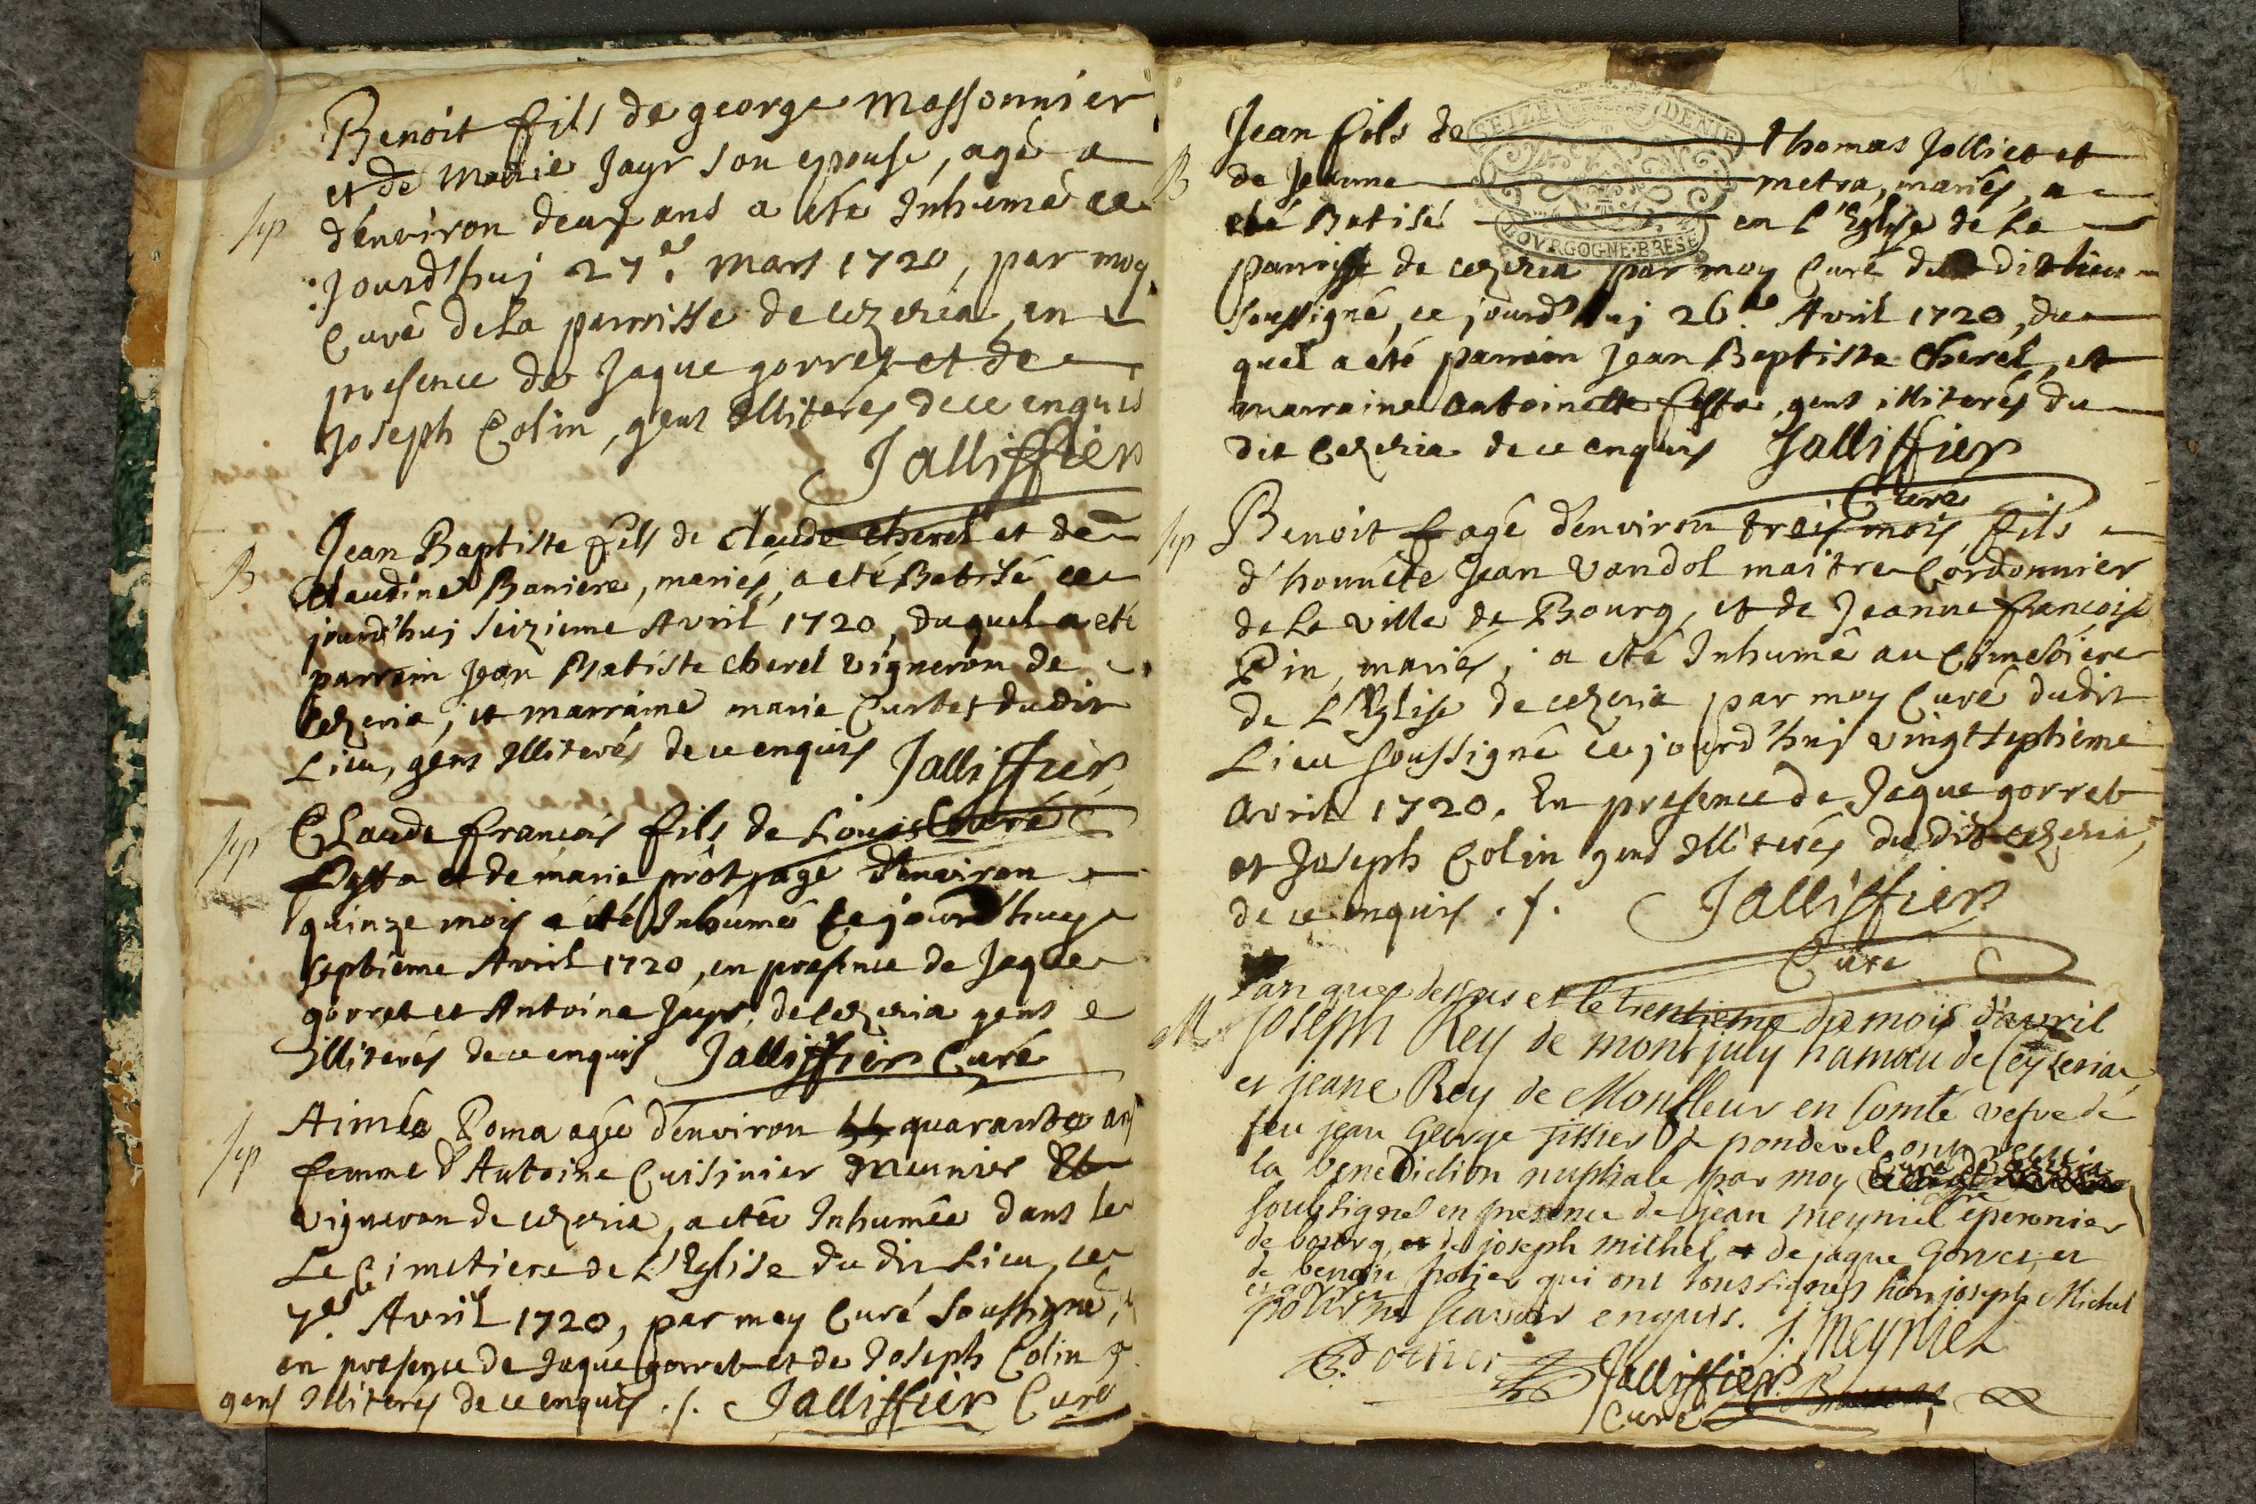 Benoit ffils de george Massonnier
et de Marie Jayr son epouse, agé a
sep
d'environ deux ans a été Inhumé ce
Jourd'huj 27e. Mars 1720, par moy
Curé de la parroisse de cezeria, en
presence de Jaque gorret et de
Joseph Colin, gens Illiterés de ce enquis
Jalliffier
Jean Baptiste fils de claude cherel et de
B
claudine Baniere, mariés, a eté Batisé ce
jourd'huj seizieme Avril 1720, duquel a eté
parrein Jean Batiste cherel vigneron de
Cezeria, et marraine marie Curtet dudit
Lieu, gens Illiterés de ce enquis Jalliffier
Curé
sep
Claude francois fils de Louis
festa et de marie prôt, agé d'environ
quinze mois a été Inhumé ce jourd'huy
septieme Avril 1720, en presence de Jaque
gorret et Antoine Jayr, de Cezeria gens
illiterés de ce enquis Jalliffier Curé
Aimée Poma agée d'environ quarante ans
sep
femme d'Antoine Cuisinier Meunier Et
vigneron de cezeria, a etée Inhumée dans le
Le Cimetiere de L'Eglise du dit Lieu, ce
7e. Avril 1720, par moy Curé soussigné,
en presence de Jaque gorret et de Joseph Colin
gens Illiterés de ce enquis ./. Jalliffier Curé
SEIZE DENIE
BOVRGOGNE·BRESE
Jean fils de Thomas Jolliet et
B
de Jeanne metra, mariés, a
eté Batisé en l'Eglise de La
parroisse de cezeria par moy Curé du dit lieu
soussigné, ce jourd'huj 26e. Avril 1720, du
quel a été parrein Jean Beptiste Cherel, et
marraine Antoinette festa, gens illiterés du
dit Cezeria de ce enquis Jalliffier
Curé
sep
Benoit agé d'environ trois mois, fils
d'honnête Jean Vandol maitre Cordonnier
de La ville de Bourg, et de Jeanne francoise
Pin, mariés, a eté Inhumé au Cimetiere
de L'Eglise de cezeria par moy Curé dudit
Lieu soussigné ce jourd'huj vingt septieme
avril 1720. En presence de Jaque gorret
et Joseph Colin gens Illiterés du dit cezeria,
de ce enquis ./. Jalliffier
Curé
l'an que dessus et le trentieme du mois d'avril
M
Joseph Rey de montjuly hamau de Ceyzeria
et jeane Rey de Monfleur en Comté vefve de
feu jean George Tissier de pondevel ont receu
la benediction nuptiale par moy Curé de
soubsigné en presence de jean meynie eperonier
de bourg, et de joseph michel, et de jaque Gorret, et
de benoit potier qui ont soussignés hors joseph Michel
et gorret
pour ne scavoir enquis. J. Meynier
Jalliffier
Curé